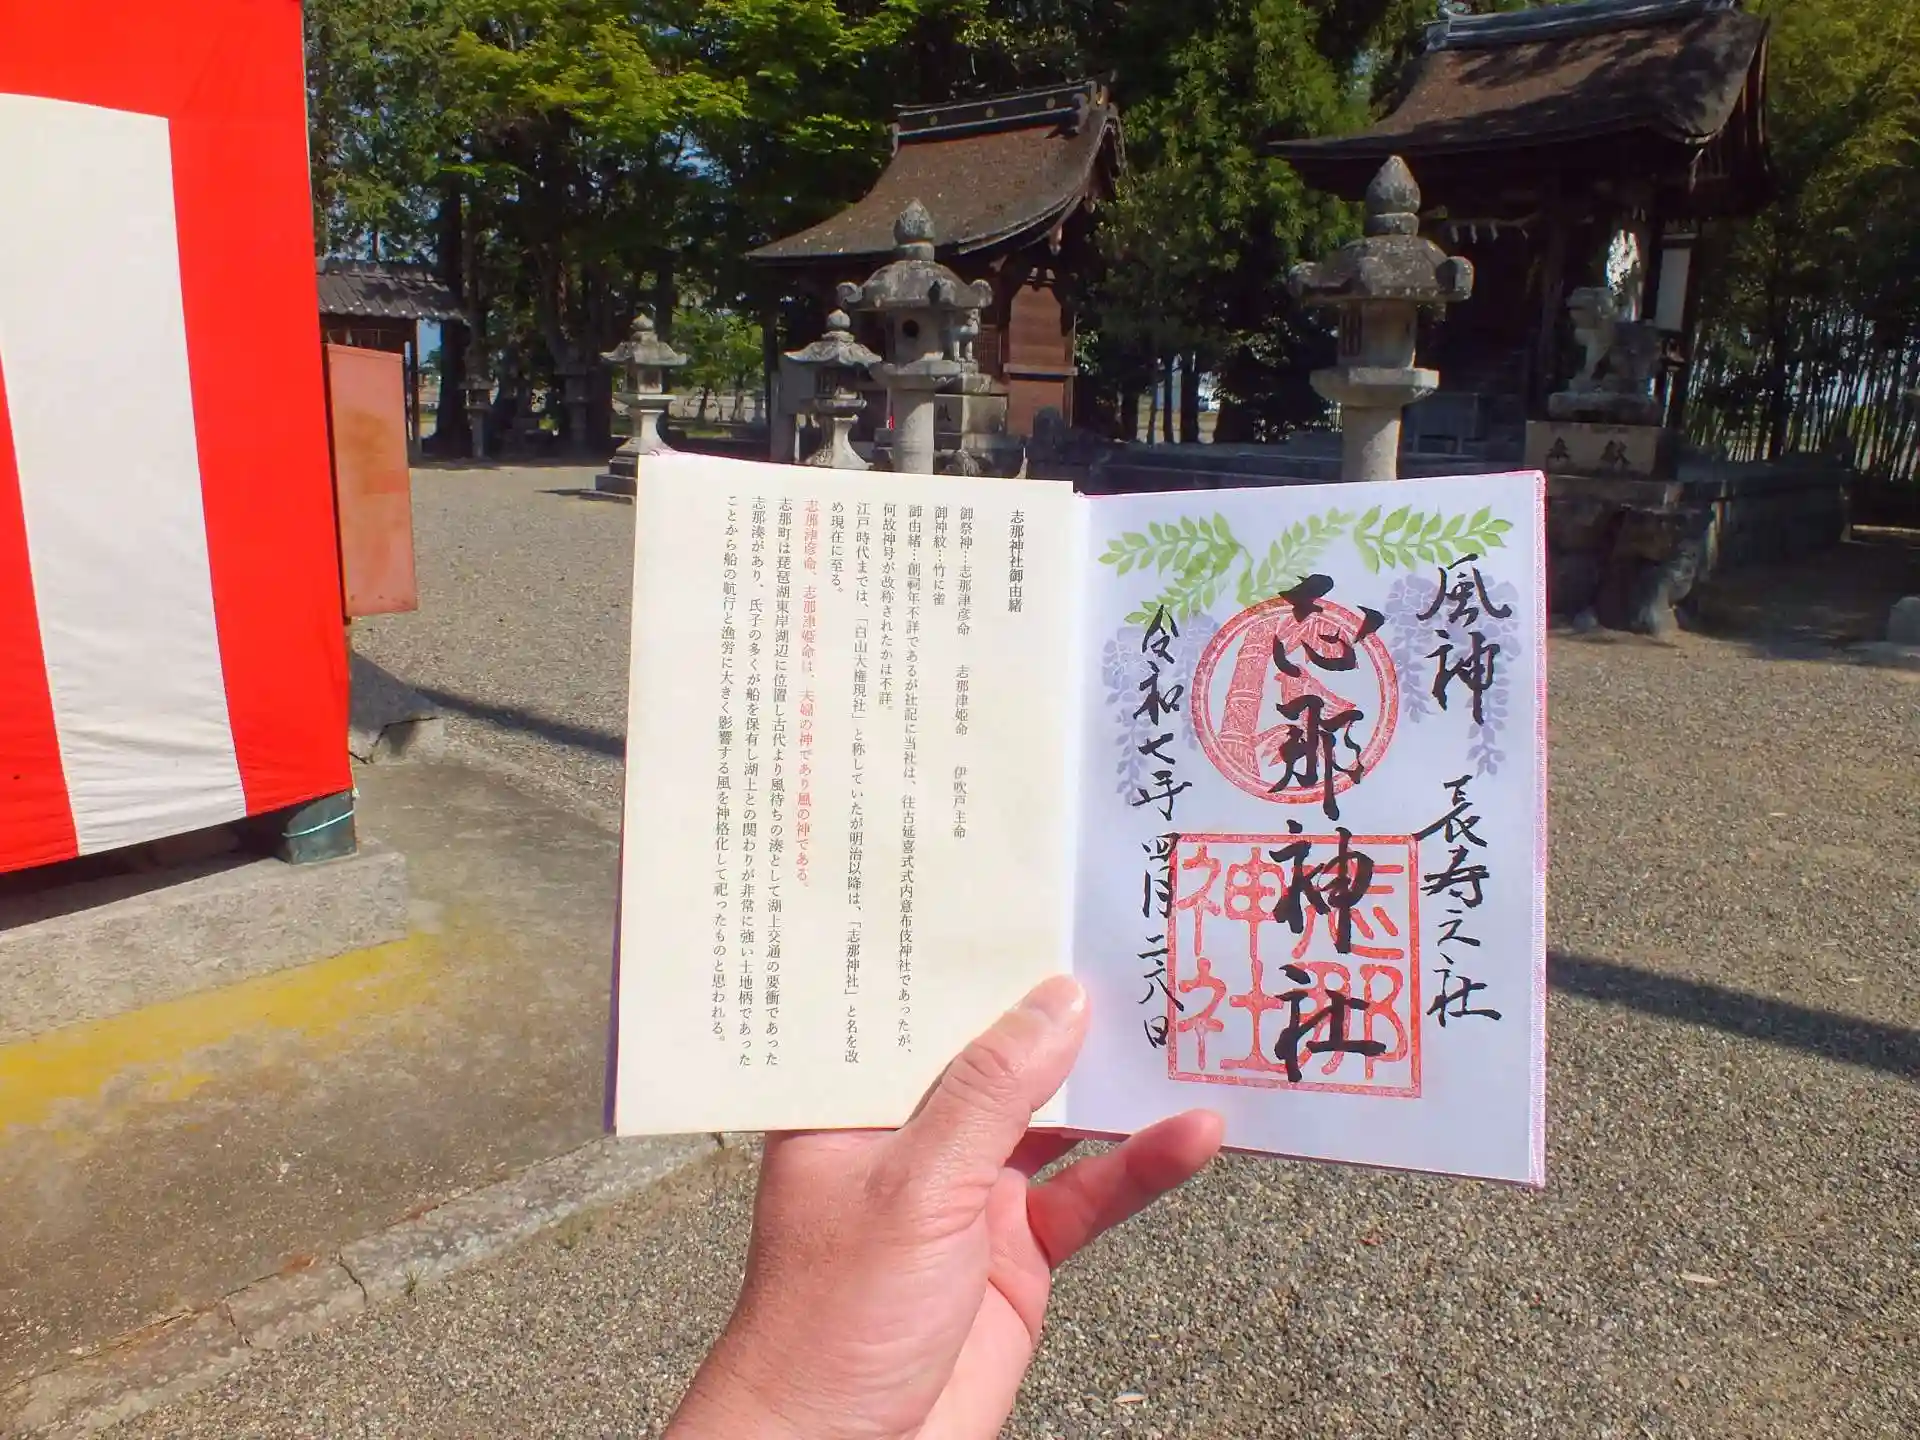 志那神社御由緒
御祭神…志那津彦命　志那津姫命　伊吹戸主命
御神紋…竹に雀
御由緒…創祠年不詳であるが社記に当社は、往古延喜式式内意布伎神社であったが、
何故神号が改称されたかは不詳。
江戸時代までは、「白山大権現社」と称していたが明治以降は、「志那神社」と名を改
め現在に至る。
志那津彦命、志那津姫命は、夫婦の神であり風の神である。
志那町は琵琶湖東岸湖辺に位置し古代より風待ちの湊として湖上交通の要衝であった
志那湊があり、氏子の多くが船を保有し湖上との関わりが非常に強い土地柄であった
ことから船の航行と漁労に大きく影響する風を神格化して祀ったものと思われる。
風神　長寿之社
志那神社
令和七年四月二八日
志那
神社
奉献
献